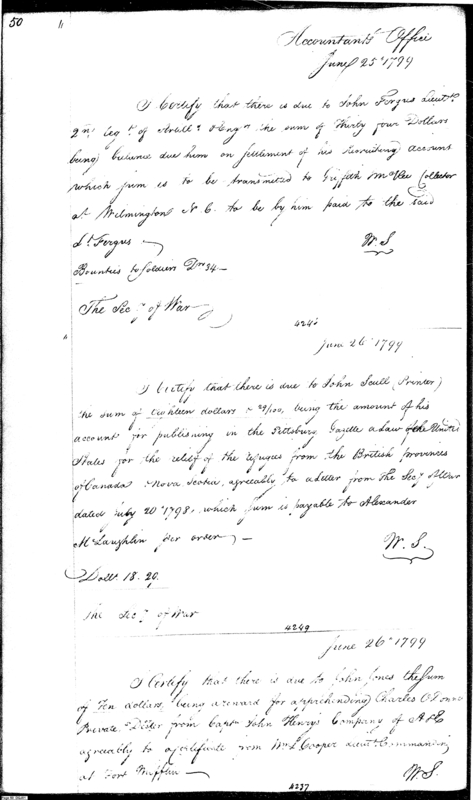 50
Accountants Office
June 25th 1799
I Certify that there is due to John Fergus Lieutt.
2nd Regt. of Artills. & Engrs. the sum of Thirty four Dollars
being balance due him on settlement of his recruiting account
which sum is to be transmitted to Griffith McRee Collector
at Wilmington N. C. to be by him paid to the said
Lt. Fergus
W. S
Bounties to Soldiers Drs 34
The Secy. of War
424
June 26th 1799
I Certify that there is due to John Scull (Printer)
the sum of Eighteen dollars & 20/100, being the amount of his
account for publishing in the Pittsburg Gazette a Law of the United
States for the relief of the refugees from the British provinces
of Canada & Nova Scotia, agreeably to a letter from the Secy. of War
dated July 20th 1798, which sum is payable to Alexander
McLaughlin per order
W. S.
Dolls. 18. 20.
The Secy. of War
4249
June 26th 1799
I Certify that there is due to John Jones the sum
of Ten dollars, being a reward for apprehending Charles O
Private & Deser from Captn. John Henry's Company of A & E
agreeably to a certificate from Wm. L Cooper Lieut. Commanding
at Fort Mifflin
W. S
4237